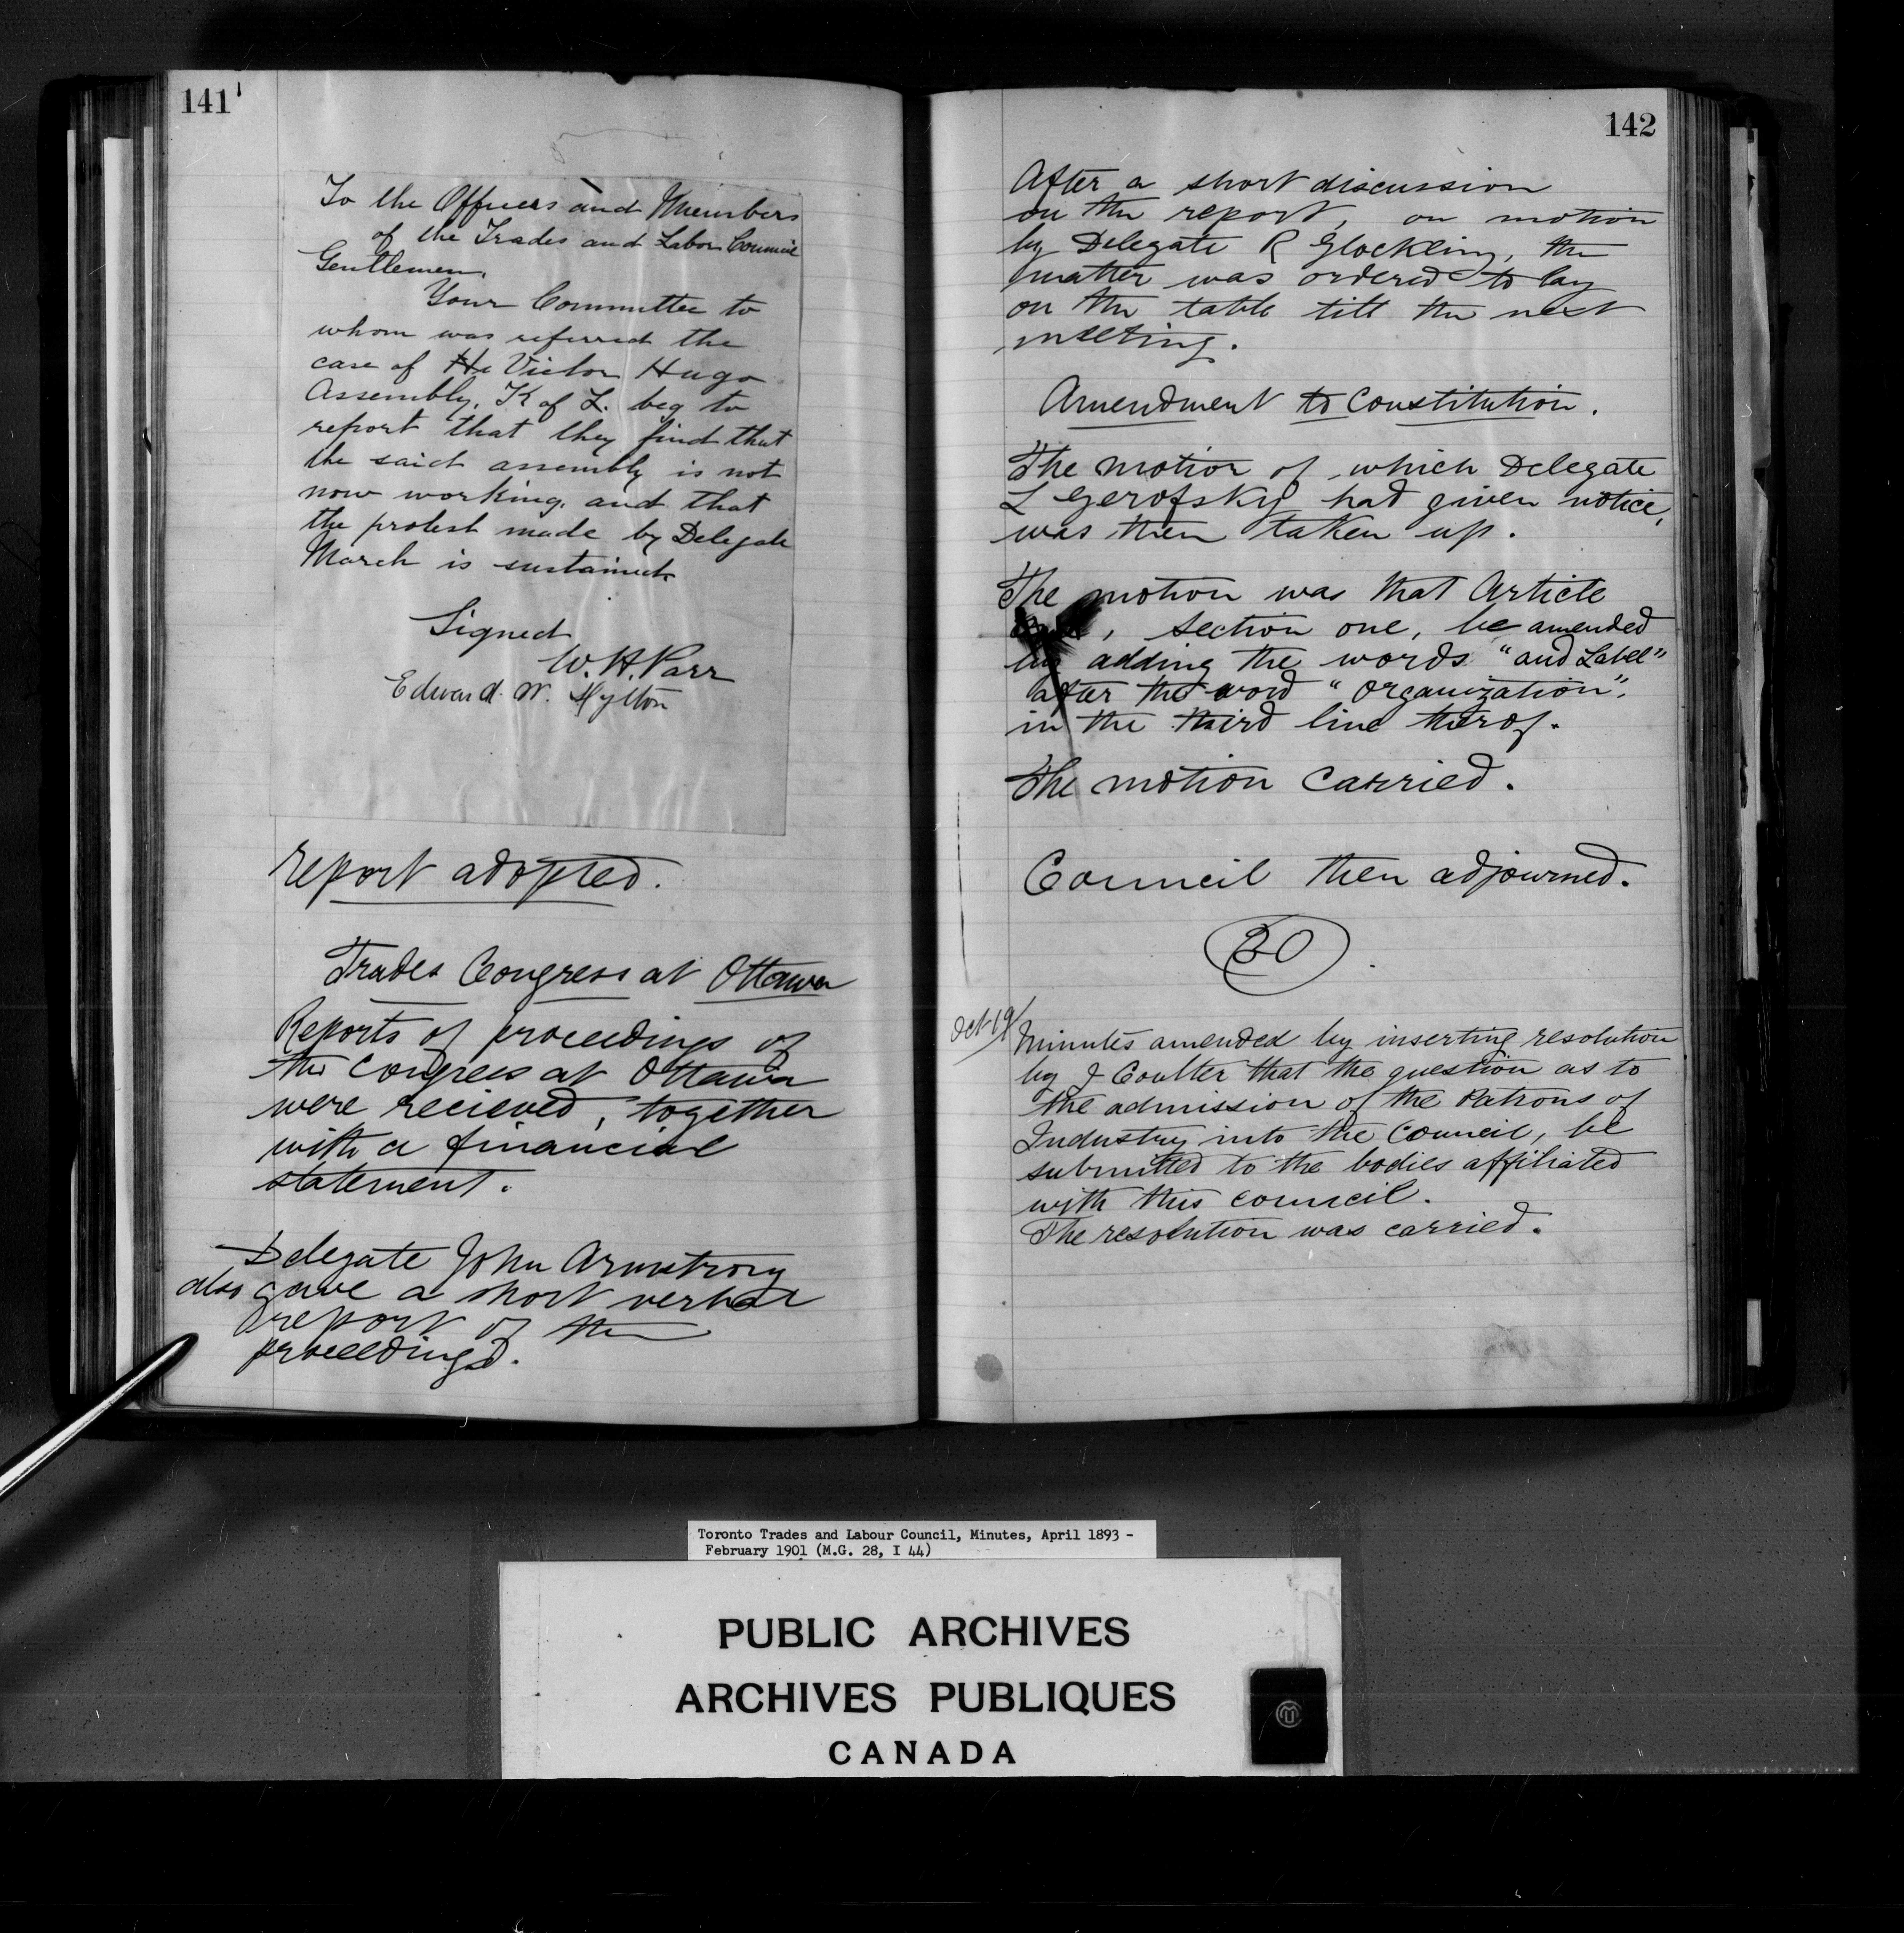 141
To the Officers and Members
of the Trades and Labor Council
Gentlemen,
Your Committee to
whom was referred the
case of the Victor Hugo
Assembly, K of L. beg to
report that they find that
the said assembly is not
now working, and that
the protest made by Delegate
March is sustained
Signed
W. H. Parr
Edward. W. Hylton
report adopted.
Trades Congress at Ottawa
Reports of proceedings of
the Congress at Ottawa
were recieved, together
with a financial
statement.
Delegate John Armstrong
also gave a short verbal
report of the
proceedings.
142
After a short discussion
on the report, on motion
by Delegate R Glockling, the
matter was ordered to lay
on the table till the next
meeting.
Amendment to Constitution.
The motion of which Delegate
L Gerofsky had given notice,
was then taken up.
The motion was that Article
, section one, be amended
by adding the words "and Label"
after the word "organization",
in the third line therof.
The motion carried.
Council then adjourned.
30
Oct 19/ Minutes amended by inserting resolution
by J Coulter that the question as to
the admission of the Patrons of
Industry into the Council, be
submitted to the bodies affiliated
with this council.
The resolution was carried.
Toronto Trades and Labour Council, Minutes, April 1893 -
February 1901 (M.G. 28, I 44)
PUBLIC ARCHIVES
ARCHIVES PUBLIQUES
CANADA